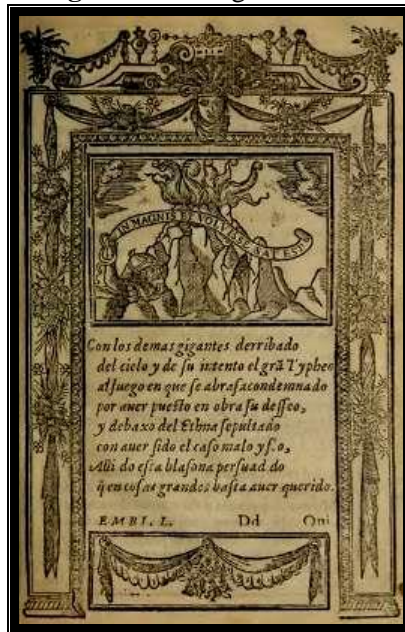 IN MAGNIS ET VOLVISSE SAT EST
Con los demas gigantes derribado
del cielo y de ſu intento el grã Typheo
al fuego en que ſe abraſa condemnado
por auer pueſto en obra ſu deſſeo,
y debaxo del Ethna ſepultado
con auer ſido el caſo malo y f.o,
Alli do eſta blaſona perſuad do
q̃ en coſas grandes baſta auer querido.
EMBL. L. Dd Qui